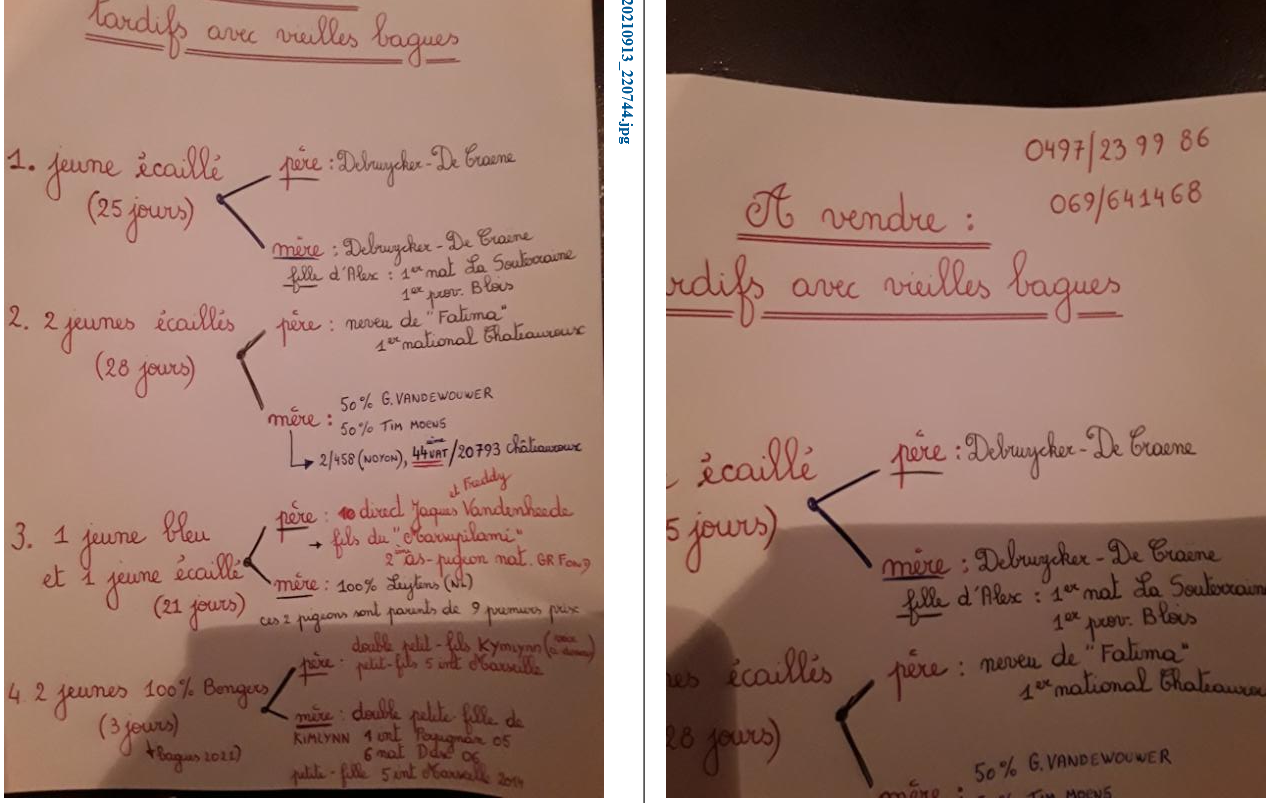 tardifs avec vieilles bagues
1. jeune écaillé
(25 jours)
père : Debruycker - De Craene
mère : Debruycker - De Craene
fille d'Alex : 1er nat La Souterraine
1er prov. Blois
2. 2 jeunes écaillés
(28 jours)
père : neveu de "Fatima"
1er national Chateauroux
mère : 50% G. VANDEWOUWER
50% TIM MOENS
2/458 (NOYON), 44ème NAT/20793 Châteauroux
3. 1 jeune bleu
et 1 jeune écaillé
(21 jours)
père : direct Jaques et Freddy Vandenheede
→ fils du "Marsupilami"
2ème as-pigeon nat. GR Fond
mère : 100% Leytens (NL)
ces 2 pigeons sont parents de 9 premiers prix
4. 2 jeunes 100% Bongers
(3 jours)
bagues 2021)
père : double petit-fils Kymlynn
petit-fils 5 int Marseille
mère : double petite-fille de
KIMLYNN 1 int Perpignan 05
6 nat Dax 06
petite-fille 5 int Marseille 2014
20210913_220744.jpg
0497/23 99 86
069/641468
A vendre :
rdifs avec vieilles bagues
écaillé
5 jours)
père : Debruycker - De Craene
mère : Debruycker - De Craene
fille d'Alex : 1er nat La Souterrain
1er prov. Blois
nes écaillés
28 jours)
père : neveu de "Fatima"
1er national Chateaurou
mère :
50% G. VANDEWOUWER
TIM MOENS